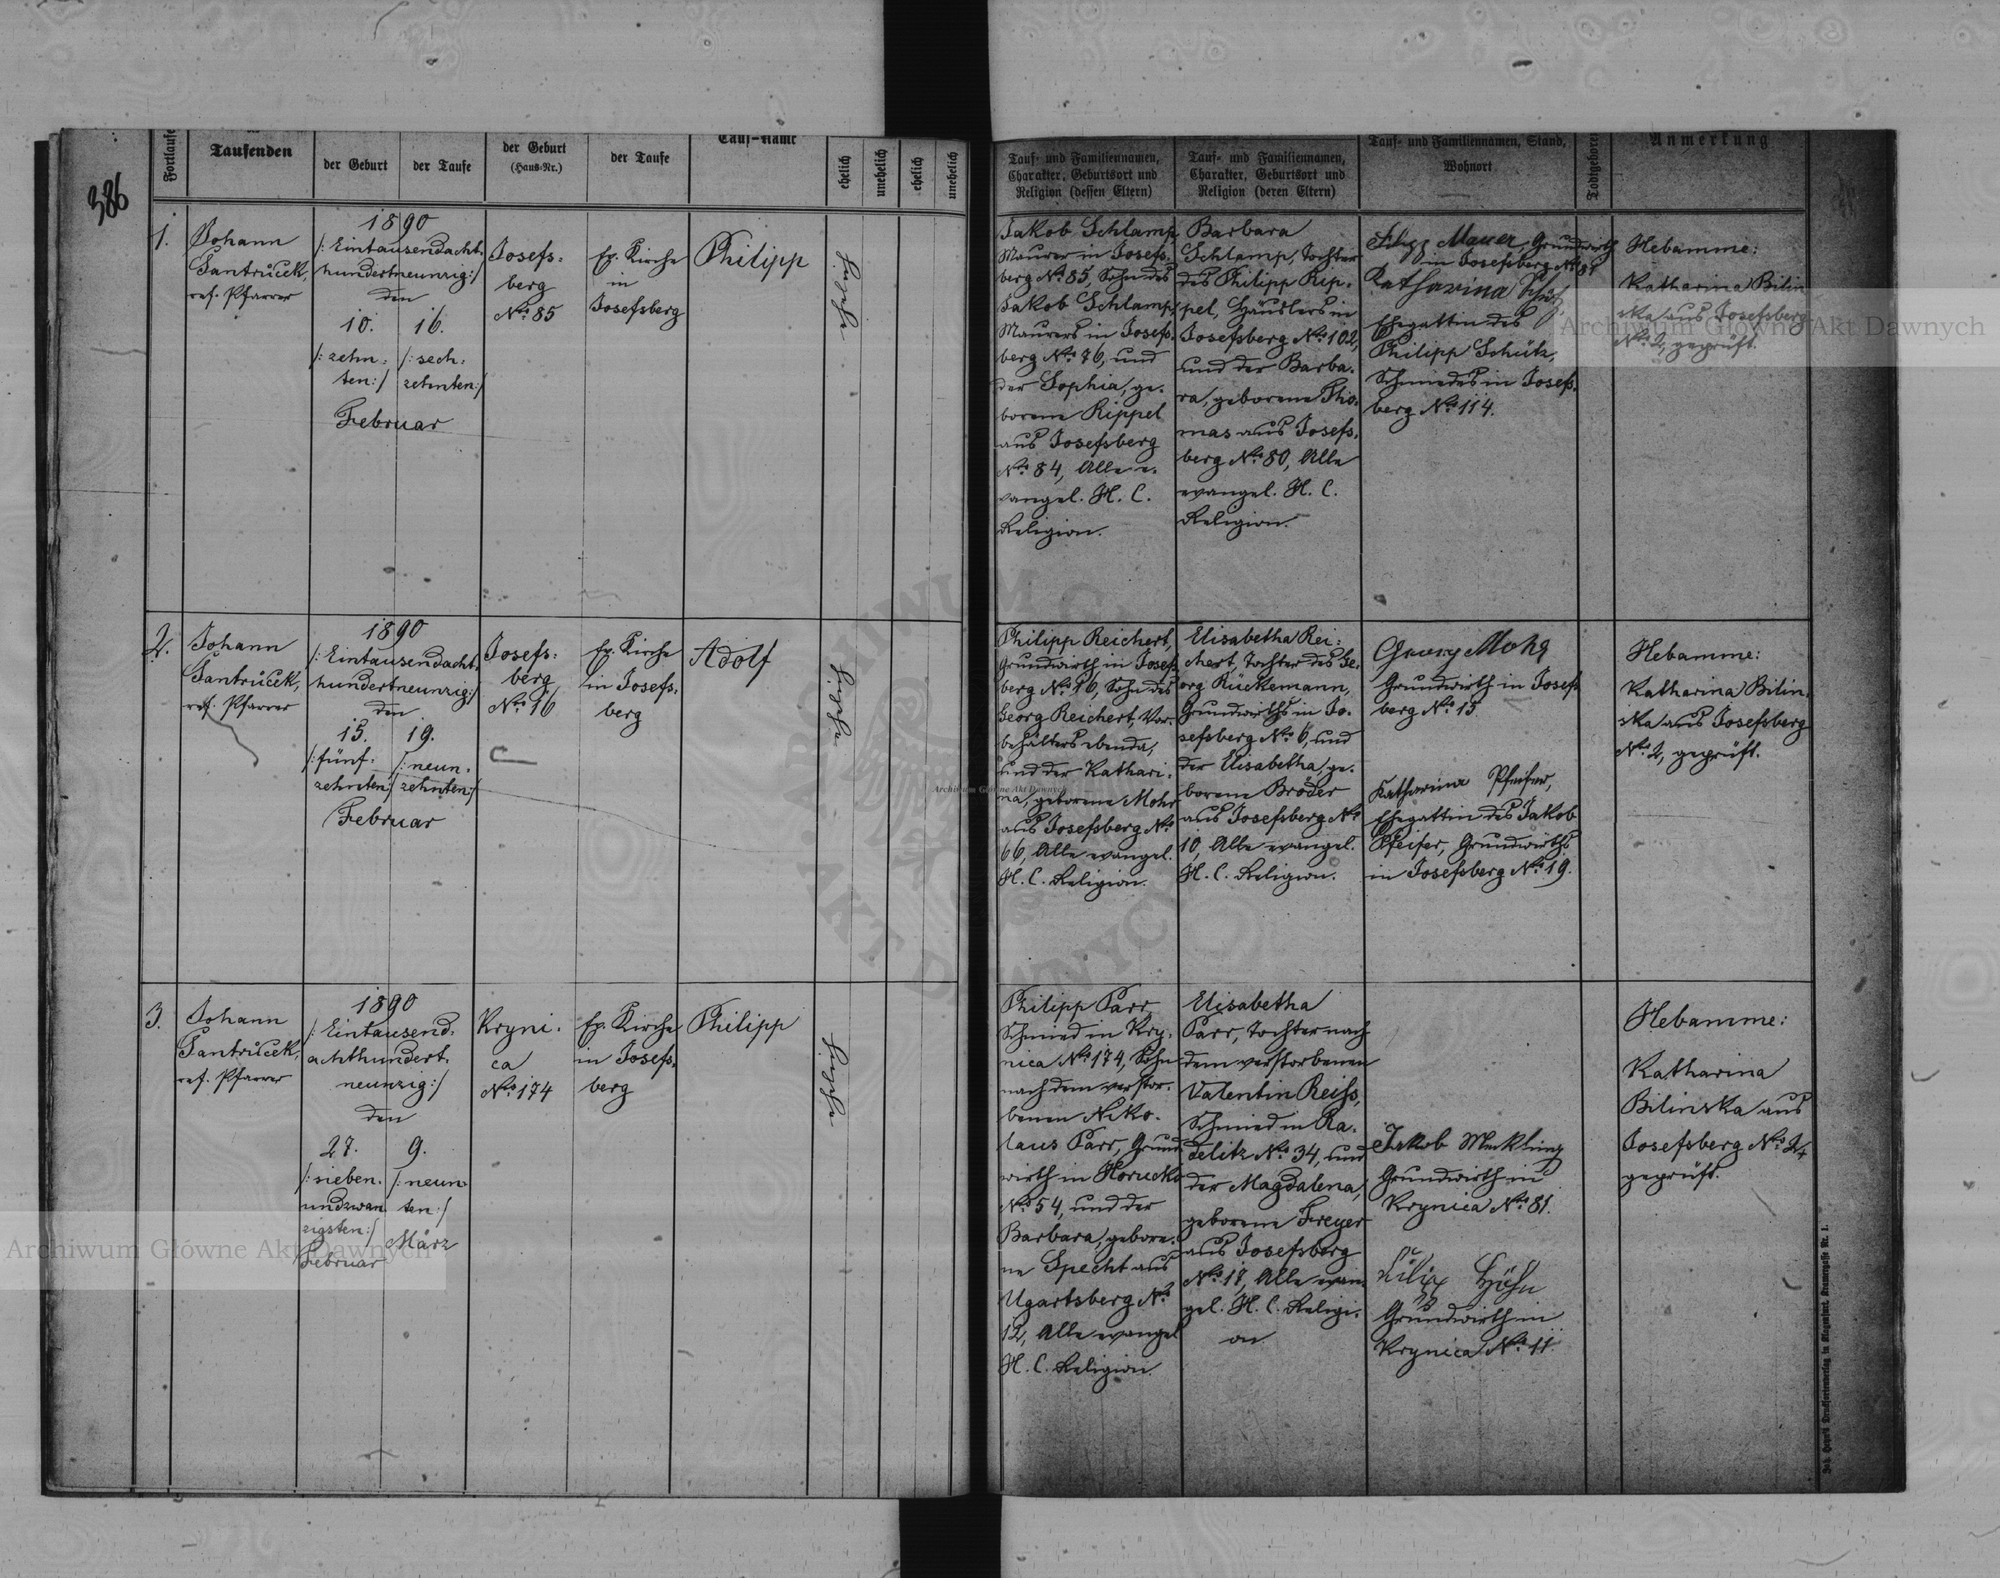 386
Fortlaufe
Taufenden
der Geburt
der Taufe
der Geburt
(Haus-Nr.)
der Taufe
Tauf-Name
ehelich
unehelich
ehelich
unehelich
Tauf- und Familiennamen,
Charakter, Geburtsort und
Religion (dessen Eltern)
Tauf- und Familiennamen,
Charakter, Geburtsort und
Religion (deren Eltern)
Tauf- und Familiennamen, Stand,
Wohnort
Todtgeboren
Anmerkung
1.
Johann
Jantrůček,
ref. Pfarrer
1890
/: Eintausendacht-
hundertneunzig:/
den
10. 16.
/: zehn- /: sech-
ten:/ zehnten:/
Februar
Josefs-
berg
No. 85
Ev. Kirche
in
Josefsberg
Philipp
Jakob Schlamp,
Maurer in Josefs-
berg No. 85, Sohn des
Jakob Schlamp,
Maurers in Josefs-
berg No. 76, und
der Sophia, ge-
borene Rippel
aus Josefsberg
No. 84, Alle e-
vangel. H. C.
Religion.
Barbara
Schlamp, Tochter
des Philipp Rip-
pel, Häuslers in
Josefsberg No. 102,
und der Barba-
ra, geborene Tho-
mas aus Josefs-
berg No. 80, Alle
evangel. H. C.
Religion.
Filipp Mauer, Grundwirth
in Josefsberg No. 81
Katharina Schütz,
Ehegattin des
Philipp Schütz,
Schmiedes in Josefs-
berg No. 114.
Hebamme:
Katharina Bilin
ska aus Josefsberg
No. 2, geprüft.
2.
Johann
Jantrůček,
ref. Pfarrer
1890
/: Eintausendacht-
hundertneunzig:/
den
15. 19.
/: fünf- /: neun-
zehnten:/ zehnten:/
Februar
Josefs-
berg
No. 16
Ev. Kirche
in Josefs-
berg
Adolf
Philipp Reichert,
Grundwirth in Josefs-
berg No. 16, Sohn des
Georg Reichert, Vor-
behälters ebenda,
und der Kathari-
na, geborene Mohr
aus Josefsberg No.
66, Alle evangel.
H. C. Religion.
Elisabetha Rei-
chert, Tochter des Ge-
org Rückemann,
Grundwirths in Jo-
sefsberg No. 6, und
der Elisabetha, ge-
borene Bröder
aus Josefsberg No.
10, Alle evangel.
H. C. Religion.
Georg Mohr
Grundwirth in Josefs
berg No. 15
Katharina Pfeifer,
Ehegattin des Jakob
Pfeifer, Grundwirths
in Josefsberg No. 19.
Hebamme:
Katharina Bilin-
ska aus Josefsberg
No. 2, geprüft.
3.
Johann
Jantrůček,
ref. Pfarrer
1890
/: Eintausend-
achthundert-
neunzig:/
den
27. 9.
/: sieben- /: neun-
undzwan ten:/
zigsten:/ März
Februar
Kryni-
ca
No. 174
Ev. Kirche
in Josefs-
berg
Philipp
Philipp Parr,
Schmied in Kry-
nica No. 174, Sohn
nach dem verstor-
benen Niko-
laus Parr, Grund
wirth in Horucko
No. 54, und der
Barbara, gebore-
ne Specht aus
Ugartsberg No.
12, Alle evangel
H. C. Religion
Elisabetha
Parr, Tochter nach
dem verstorbenen
Valentin Reiss,
Schmied in Ra-
delitz No. 34, und
der Magdalena,
geborene Freyer
aus Josefsberg
No. 18, Alle evan-
gel. H. C. Religi-
on
Jakob Meckling
Grundwirth in
Krynica No. 81.
Filipp Höhn
Grundwirth in
Krynica No. 11
Hebamme:
Katharina
Bilinska aus
Josefsberg No. 2,
geprüft.
Archiwum Główne Akt Dawnych
Archiwum Główne Akt Dawnych
Archiwum Główne Akt Dawnych